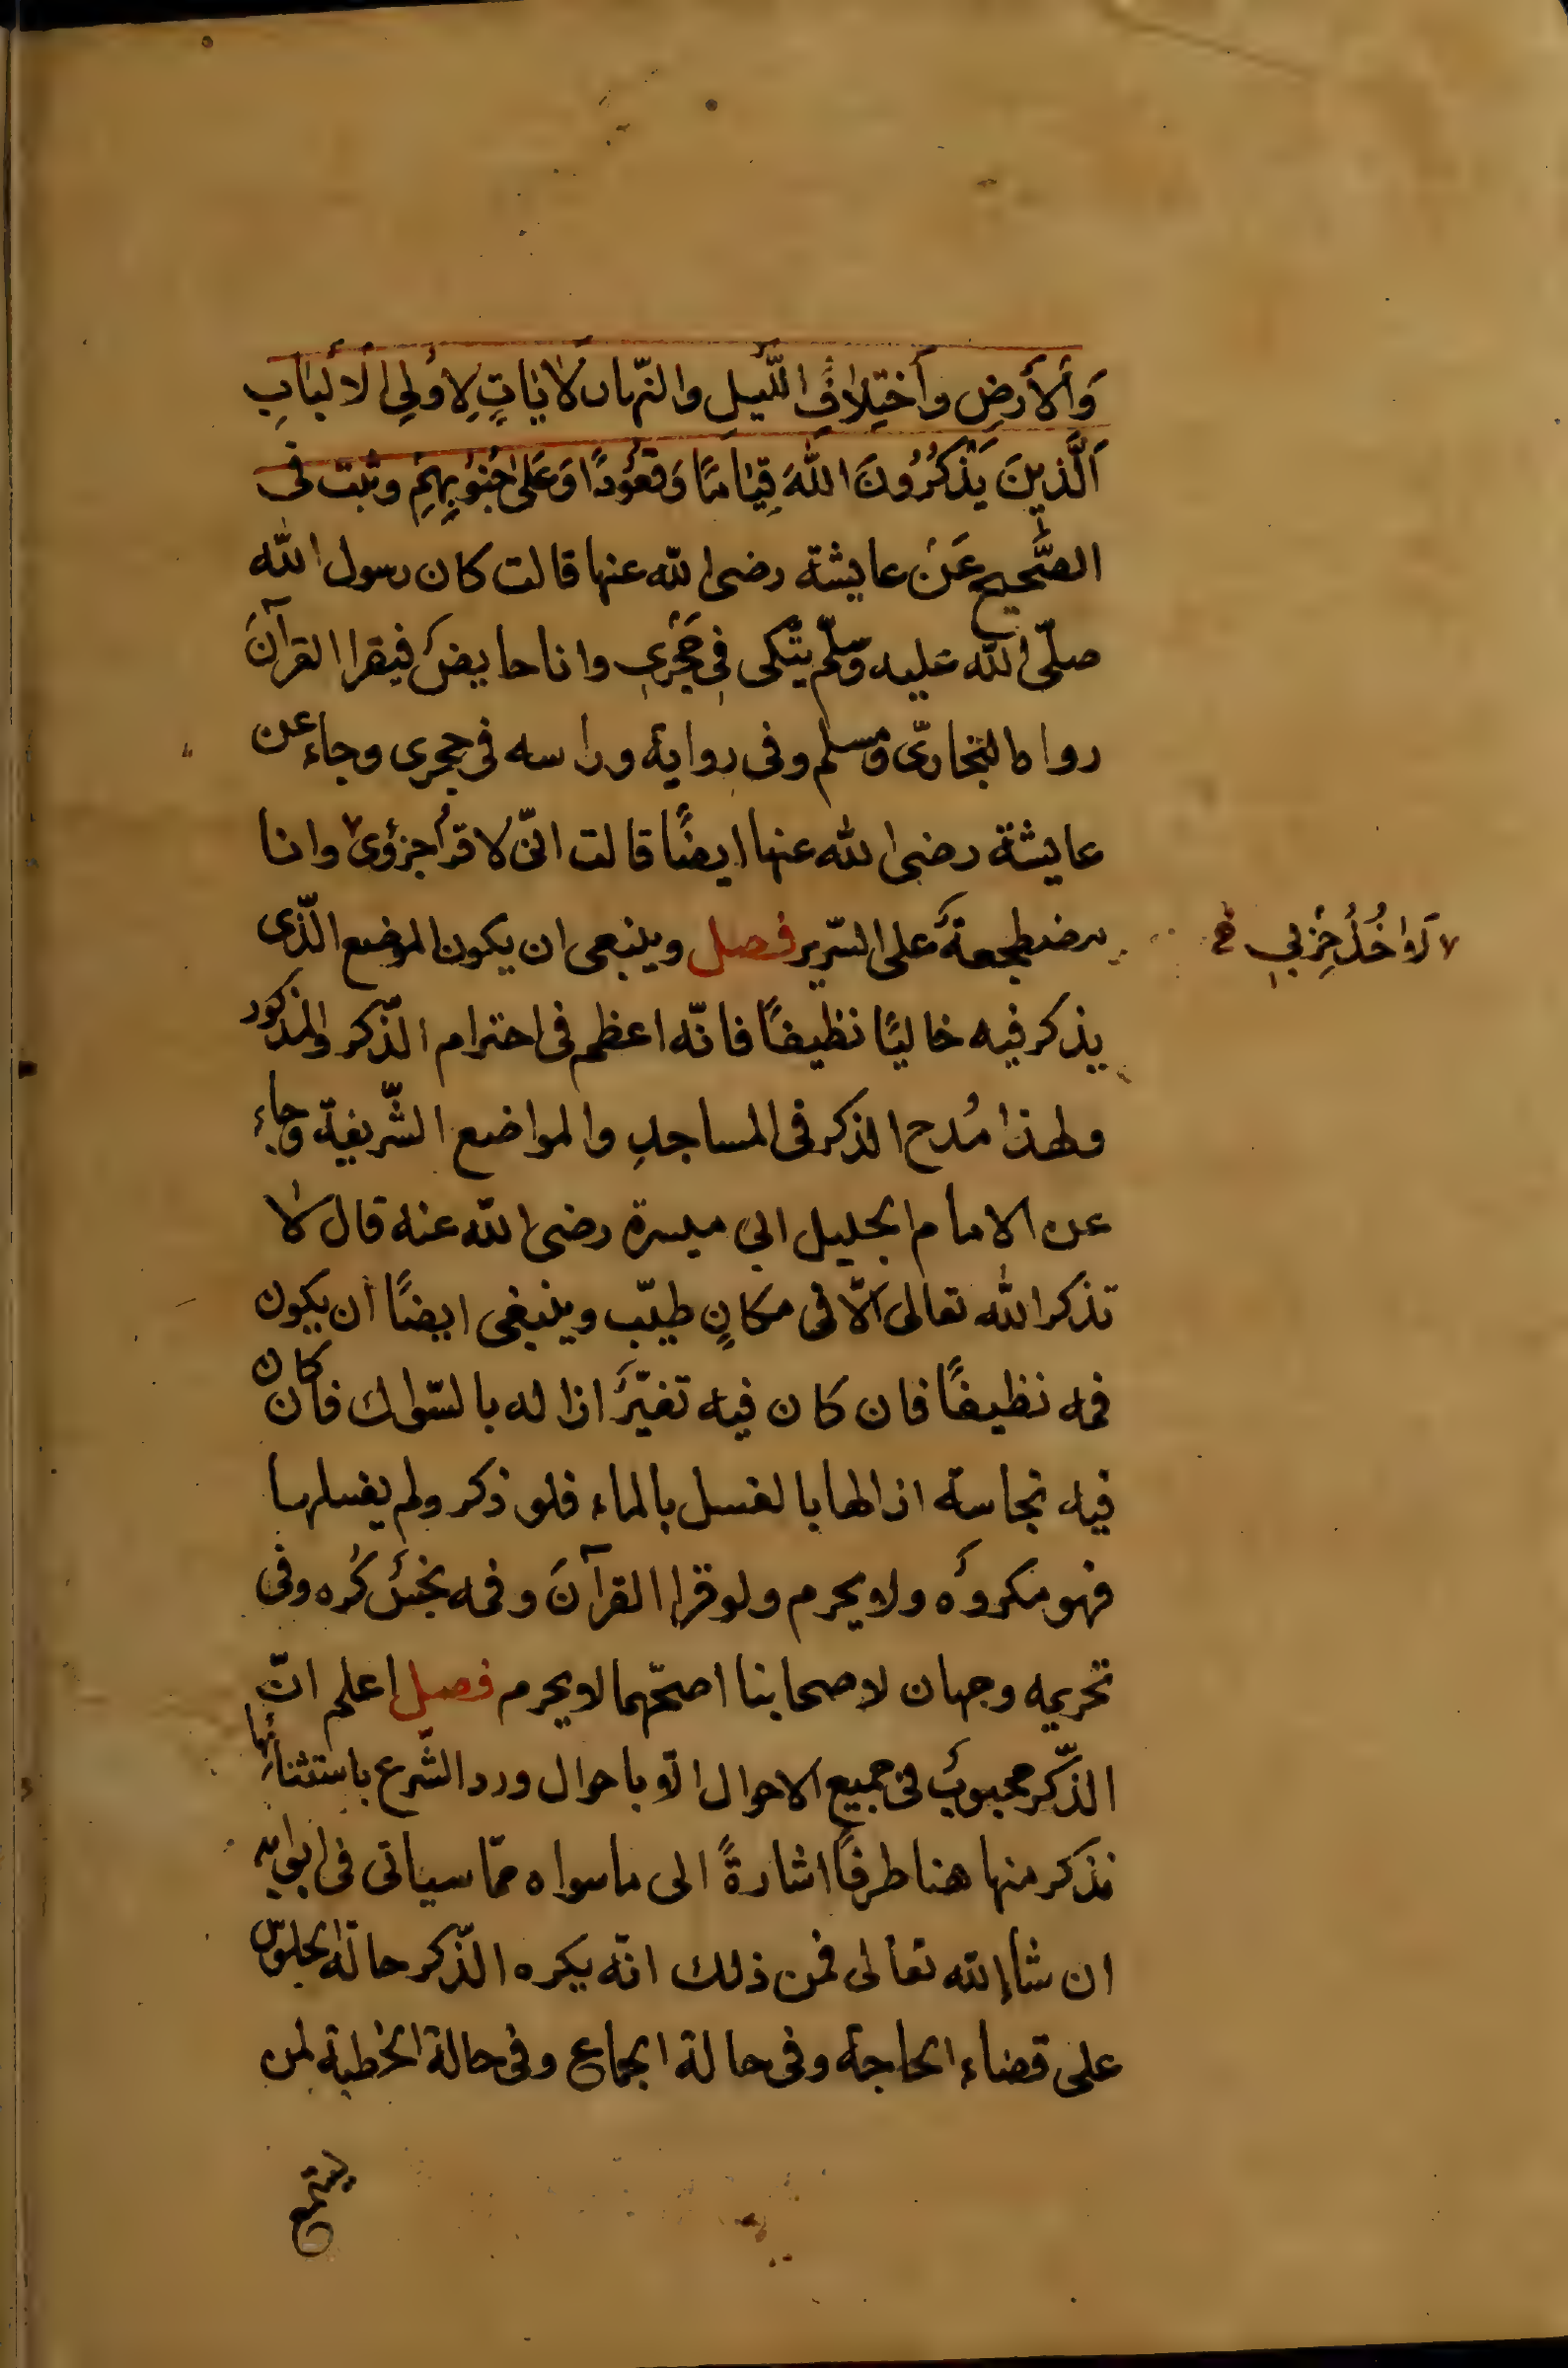 وَٱلْأَرضِ وَٱخْتِلَافِ اللَّيلِ والنّهار لَاٰيَاتٍ لِاُولِي الْأَلْبَابِ
اَلَّذينَ يَذْكُرُونَ اللّٰهَ قِيَامًا وَقعُودًا وَعَلىٰ جُنُوبِهِمْ وثبت فى
الصَّحيح عَنْ عايشة رضى الله عنها قالت كان رسول الله
صلّى الله عليه وسلّم يتّكى فِى حَجْرِى وانا حايضٌ فيقرا القرآنَ
رواه البخارىّ ومسلم وفى رواية وراسه فى حجرى وجاء عن
عايشة رضى الله عنها ايضًا قالت انّى لاقرأُ جزؤى وانا
مضطجعةٌ على السّرير فصل وينبعى ان يكون الموضع الّذى
يذكر فيه خاليًا نظيفًا فانّه اعظم فى احترام الذّكر والمذكور
ولهذا مُدح الذكر فى المساجدِ والمواضع الشّريفة وجاء
عن الامام الجليل ابى ميسرة رضى الله عنه قال لا
تذكر الله تعالى الّا فى مكانٍ طيّب وينبغى ايضًا أن يكون
فمه نظيفًا فان كان فيه تغيّرٌ ازاله بالسّواك فان كان
فيه نجاسة ازالها بالغسل بالماء فلو ذكر ولم يغسلها
فهو مكروهٌ ولا يحرم ولو قرا القرآنَ وفمه نجسٌ كُره وفى
تحريمه وجهان لاصحابنا اصحّهما لا يحرم فصل اعلم انّ
الذّكر محبوبٌ فى جميع الاحوال الّا باحوال ورد الشّرع باستثنائها
نذكر منها هنا طرفًا اشارةً الى ما سواه ممّا سياتى فى ابوابه
ان شاء الله تعالى فمن ذلك انّه يكره الذّكر حالة الجلوس
على قضاء الحاجة وفى حالة الجماع وفى حالة الخطبة لمن
يسمع